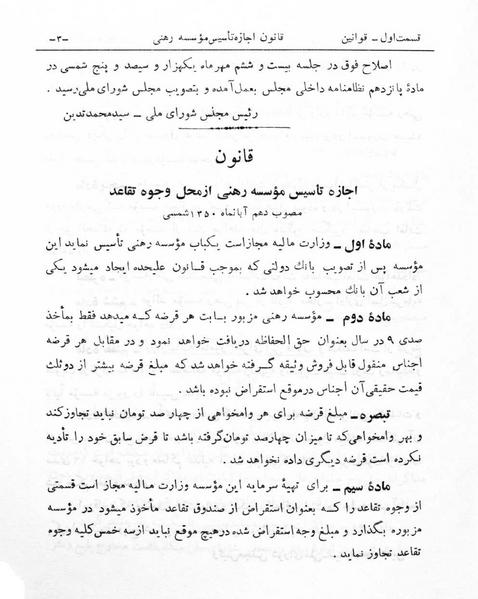 قسمت اول ـ قوانین قانون اجازه تأسیس مؤسسه رهنی ـ۳ـ
اصلاح فوق در جلسه بیست و ششم مهرماه یکهزار و سیصد و پنج شمسی در
مادۀ پانزدهم نظامنامه داخلی مجلس بعمل آمده و بتصویب مجلس شورای ملی رسید .
رئیس مجلس شورای ملی ـ سیدمحمدتدین
قانون
اجازه تأسیس مؤسسه رهنی از محل وجوه تقاعد
مصوب دهم آبانماه ۱۳۵۰ شمسی
مادۀ اول ـ وزارت مالیه مجاز است یکباب مؤسسه رهنی تأسیس نماید این
مؤسسه پس از تصویب بانك دولتی که بموجب قانون علیحده ایجاد میشود یکی
از شعب آن بانك محسوب خواهد شد .
مادۀ دوم ـ مؤسسه رهنی مزبور بابت هر قرضه که میدهد فقط بمأخذ
صدی ۹ در سال بعنوان حق الحفاظه دریافت خواهد نمود و در مقابل هر قرضه
اجناس منقول قابل فروش وثیقه گرفته خواهد شد که مبلغ قرضه بیشتر از دوثلث
قیمت حقیقی آن اجناس درموقع استقراض نبوده باشد .
تبصره ـ مبلغ قرضه برای هر وامخواهی از چهار صد تومان نباید تجاوزکند
و بهر وامخواهی که تا میزان چهارصد تومان گرفته باشد تا قرض سابق خود را تأدیه
نکرده است قرضه دیگری داده نخواهد شد .
مادۀ سیم ـ برای تهیۀ سرمایه این مؤسسه وزارت مالیه مجاز است قسمتی
از وجوه تقاعد را که بعنوان استقراض از صندوق تقاعد مأخوذ میشود در مؤسسه
مزبوره بگذارد و مبلغ وجه استقراض شده درهیچ موقع نباید ازسه خمس کلیه وجوه
تقاعد تجاوز نماید .